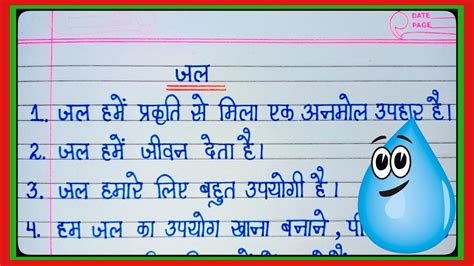 DATE
PAGE
जल
1. जल हमें प्रकृति से मिला एक अनमोल उपहार है।
2. जल हमें जीवन देता है।
3. जल हमारे लिए बहुत उपयोगी है।
4. हम जल का उपयोग खाना बनाने,